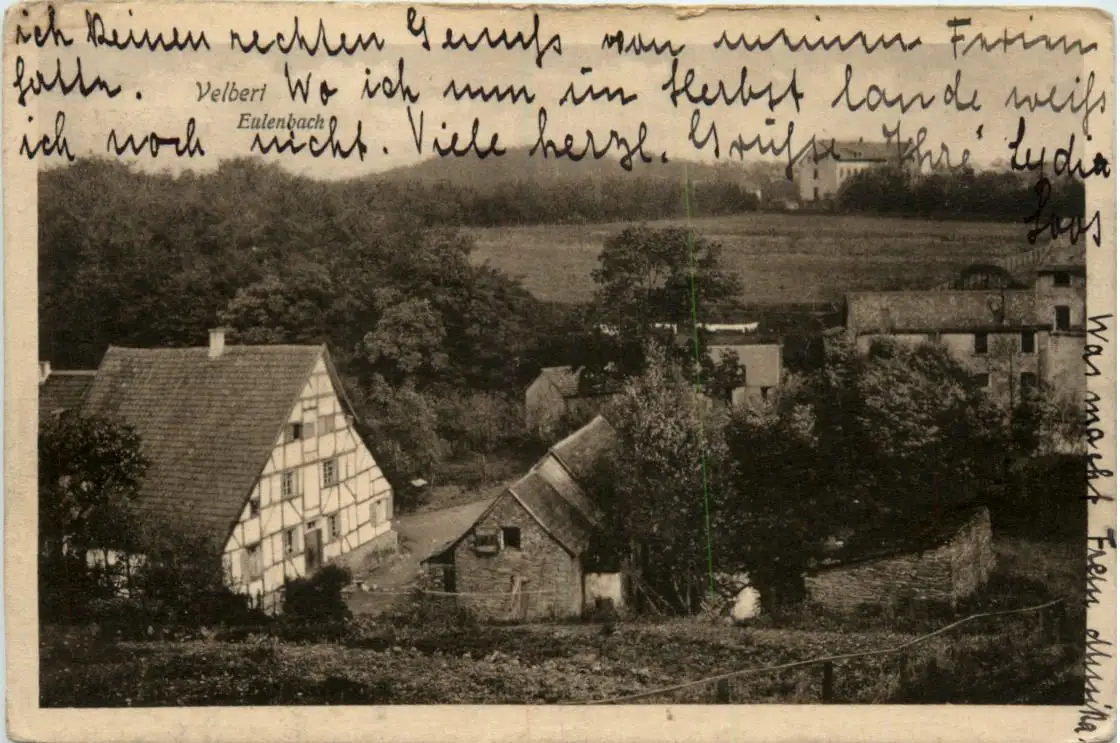 ich keinen rechten Genuss von meinen Ferien
hatte.
Velbert
Eulenbach
Wo ich nun im Herbst lande weiß
ich noch nicht. Viele herzl. Grüße Ihre Lydia
Loos
Was macht Frein